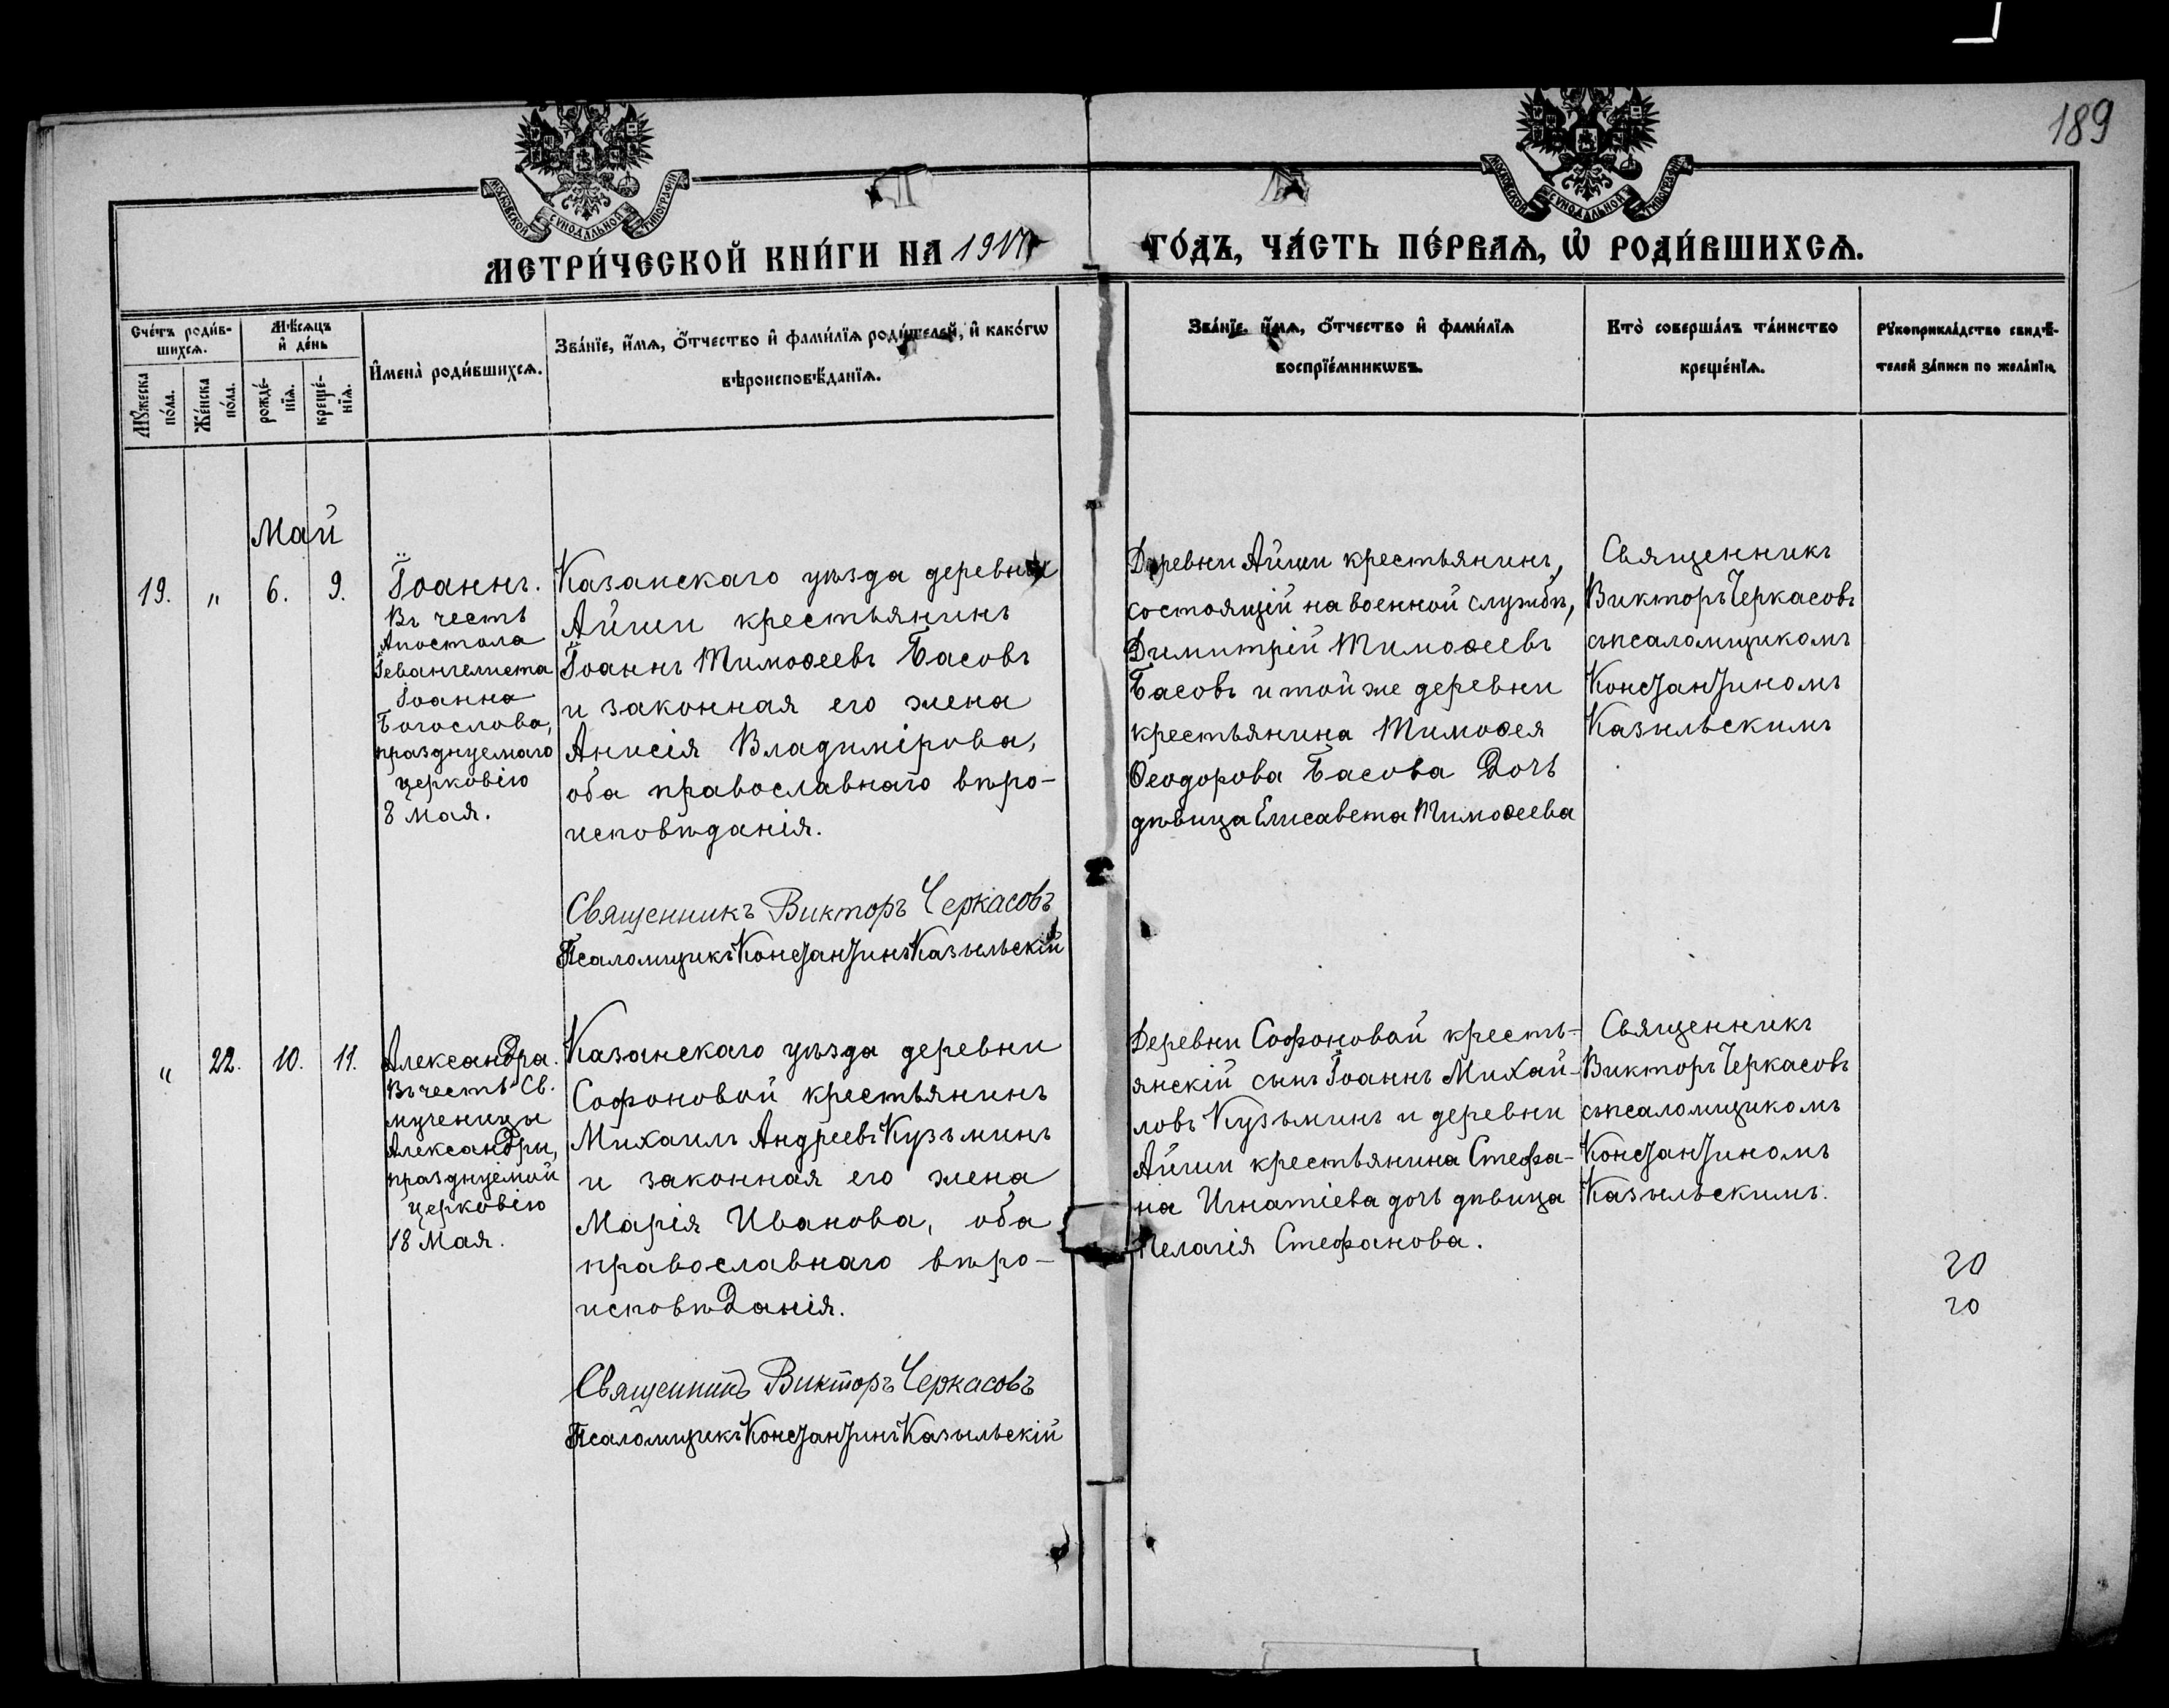 189
МОСКОВСКОЙ СУНОДАЛЬНОЙ ТИПОГРАФІИ
МОСКОВСКОЙ СУНОДАЛЬНОЙ ТИПОГРАФІИ
МЕТРИ́ЧЕСКОЙ КНИ́ГИ НА
ГО́ДЪ, ЧА́СТЬ ПЕ́РВАѦ, Ѡ҆ РОДИ́ВШИХСѦ.
Сче́тъ роди́в-
шихсѧ.
Мѣ́сѧцъ
и҆ де́нь
И҆мена̀ роди́вшихсѧ.
Зва́нїе, и҆́мѧ, ѻ҆́тчество и҆ фами́лїѧ роди́телей, и҆ како́гѡ
вѣроисповѣ́данїѧ.
Мꙋ́жеска
по́ла.
Же́нска
по́ла.
рожде́-
нїѧ.
креще́-
нїѧ.
Зва́нїе, и҆́мѧ, ѻ҆́тчество и҆ фами́лїѧ
воспрїе́мникѡвъ.
Кто̀ соверша́лъ та́инство
креще́нїѧ.
Рꙋкоприкла́дство свидѣ́-
телей за́писи по жела́нїю.
Май
19. " 6. 9.
Іоаннъ.
Въ честь
Апостола
Іевангелиста
Іоанна
Богослова,
празднуемаго
церковію
8 мая.
Казанскаго уѣзда деревни
Айши крестьянинъ
Іоаннъ Тимоѳеевъ Басовъ
и законная его жена
Анисія Владимірова,
оба православнаго вѣро-
исповѣданія.
Священникъ Викторъ Черкасовъ
Псаломщикъ Константинъ Казыльскій
Деревни Айши крестьянинъ,
состоящій на военной службѣ,
Димитрій Тимоѳеевъ
Басовъ и той же деревни
крестьянина Тимоѳея
Ѳеодорова Басова дочь
дѣвица Елисавета Тимоѳеева
Священникъ
Викторъ Черкасовъ
съ псаломщикомъ
Константиномъ
Казыльскимъ
" 22. 10. 11.
Александра.
Въ честь Св.
мученицы
Александры,
празднуемой
церковію
18 Мая.
Казанскаго уѣзда деревни
Софоновой крестьянинъ
Михаилъ Андреевъ Кузьминъ
и законная его жена
Марія Иванова, оба
православнаго вѣро-
исповѣданія.
Священникъ Викторъ Черкасовъ
Псаломщикъ Константинъ Казыльскій
Деревни Софоновой кресть-
янскій сынъ Іоаннъ Михай-
ловъ Кузьминъ и деревни
Айши крестьянина Стефа-
на Игнатіева дочь дѣвица
Пелагія Стефанова.
Священникъ
Викторъ Черкасовъ
съ псаломщикомъ
Константиномъ
Казыльскимъ.
20
20